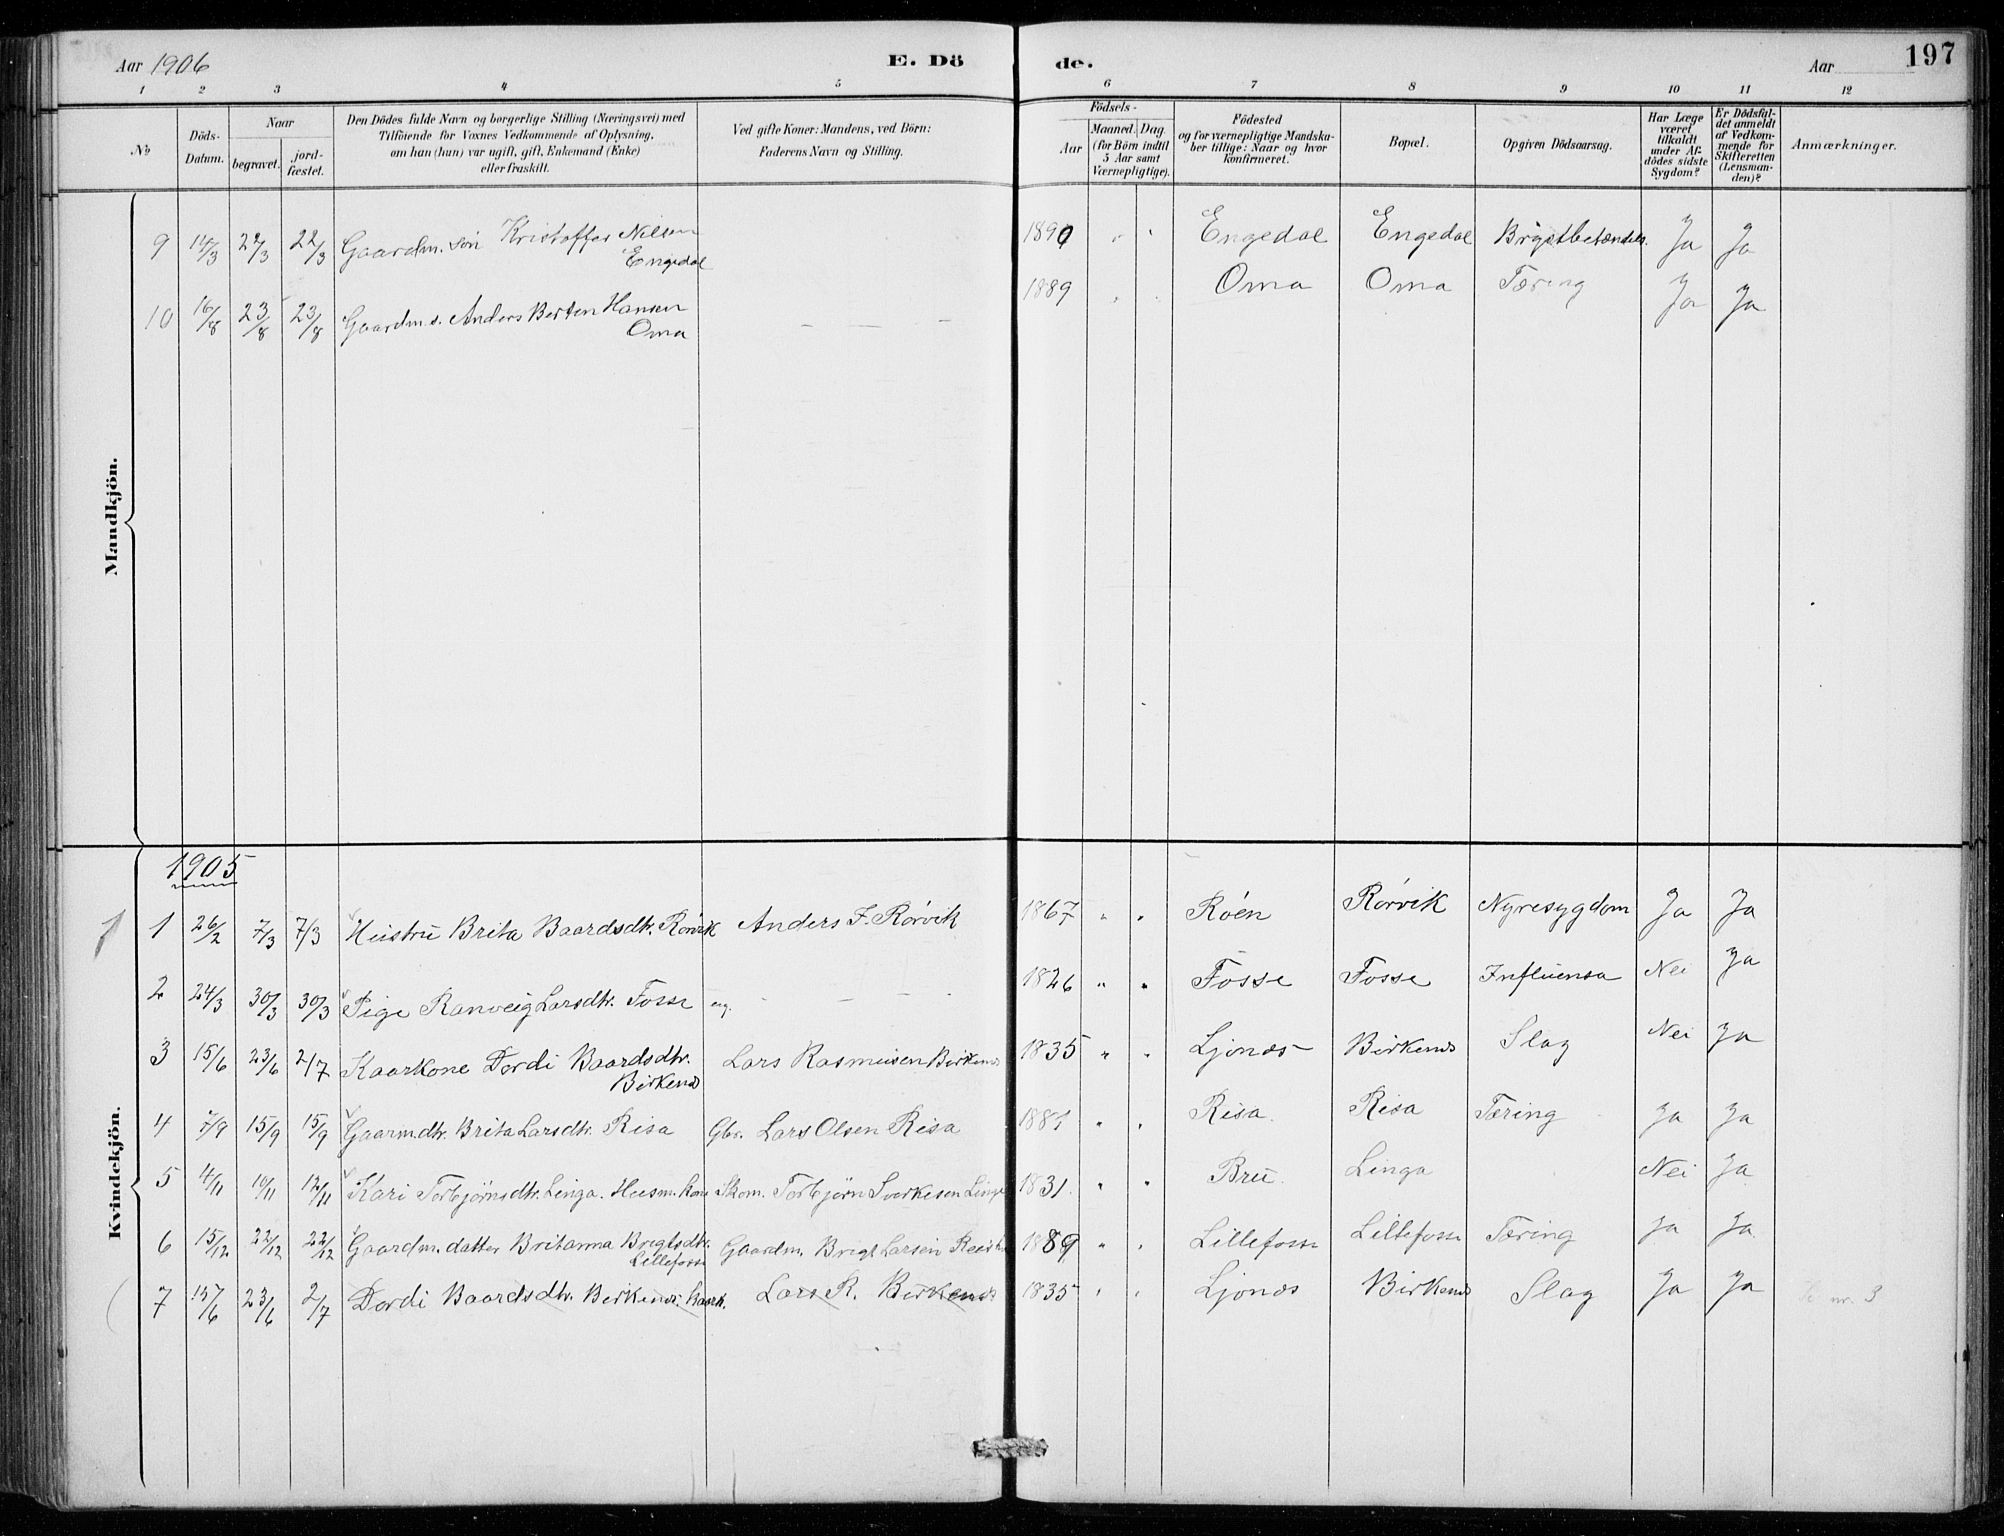 Aar 1906 E. Dö de. Aar 197
1 2 3 4 5 6 7 8 9 10 11 12
No
Döds-Datum.
Naar
begravet.
jord-fæstet.
Den Dödes fulde Navn og borgerlige Stilling (Næringsvei) med
Tilföiende for Voxnes Vedkommende af Oplysning,
om han (hun) var ugift, gift, Enkemand (Enke)
eller fraskilt.
Ved gifte Koner: Mandens, ved Börn:
Faderens Navn og Stilling.
Födsels-
Aar
Maaned. Dag.
(for Börn indtil
5 Aar samt
Værnepligtige).
Födested
og for værnepligtige Mandska-
ber tillige: Naar og hvor
konfirmeret.
Bopæl.
Opgiven Dödsaarsag.
Har Læge
været
tilkaldt
under Af-
dödes sidste
Sygdom?
Er Dödsfal-
det anmeldt
af Vedkom-
mende for
Skifteretten
(Lensman-
den)?
Anmærkninger.
Mandkjön.
9 14/3 22/3 22/3 Gaardm. sön Kristoffer Nilsen Engedal 1890 " " Engedal Engedal Brystbetændels. Ja Ja
10 16/8 23/8 23/8 Gaardm.s. Anders Berten Hansen Oma — — — 1889 " " Oma Oma Tæring Ja Ja
Kvindekjön.
1905
1 26/2 7/3 7/3 Hustru Brita Baardsdtr. Rørvik Anders J. Rørvik 1867 " " Røen Rørvik Nyresygdom Ja Ja
2 24/3 30/3 30/3 Pige Ranveig Larsdtr. Fosse ug. — — 1826 " " Fosse Fosse Influensa Nei Ja
3 15/6 23/6 2/7 Kaarkone Dordi Baardsdtr. Birkenes Lars Rasmusen Birkenes 1835 " " Ljones Birkenes Slag Nei Ja
4 7/9 15/9 15/9 Gaarm.dtr. Brita Larsdtr. Risa Gbr. Lars Olsen Risa 1881 " " Risa Risa Tæring Ja Ja
5 4/11 10/11 12/11 Kari Torbjørnsdtr. Linga. Husm. kone Skom. Torbjørn Sverkesen Linga 1831 " " Bru Linga Nei Ja
6 15/12 22/12 22/12 Gaardm. datter Britanna Brigtsdtr. Lillefosse Gaardm. Brigt Larsen 1889 " " Lillefosse Lillefosse Tæring Ja Ja
7 15/6 23/6 2/7 Dordi Baardsdtr. Birkenes. Kaark. Lars R. Birkenes 1835 " " Ljones Birkenes Slag Ja Ja Se nr. 3